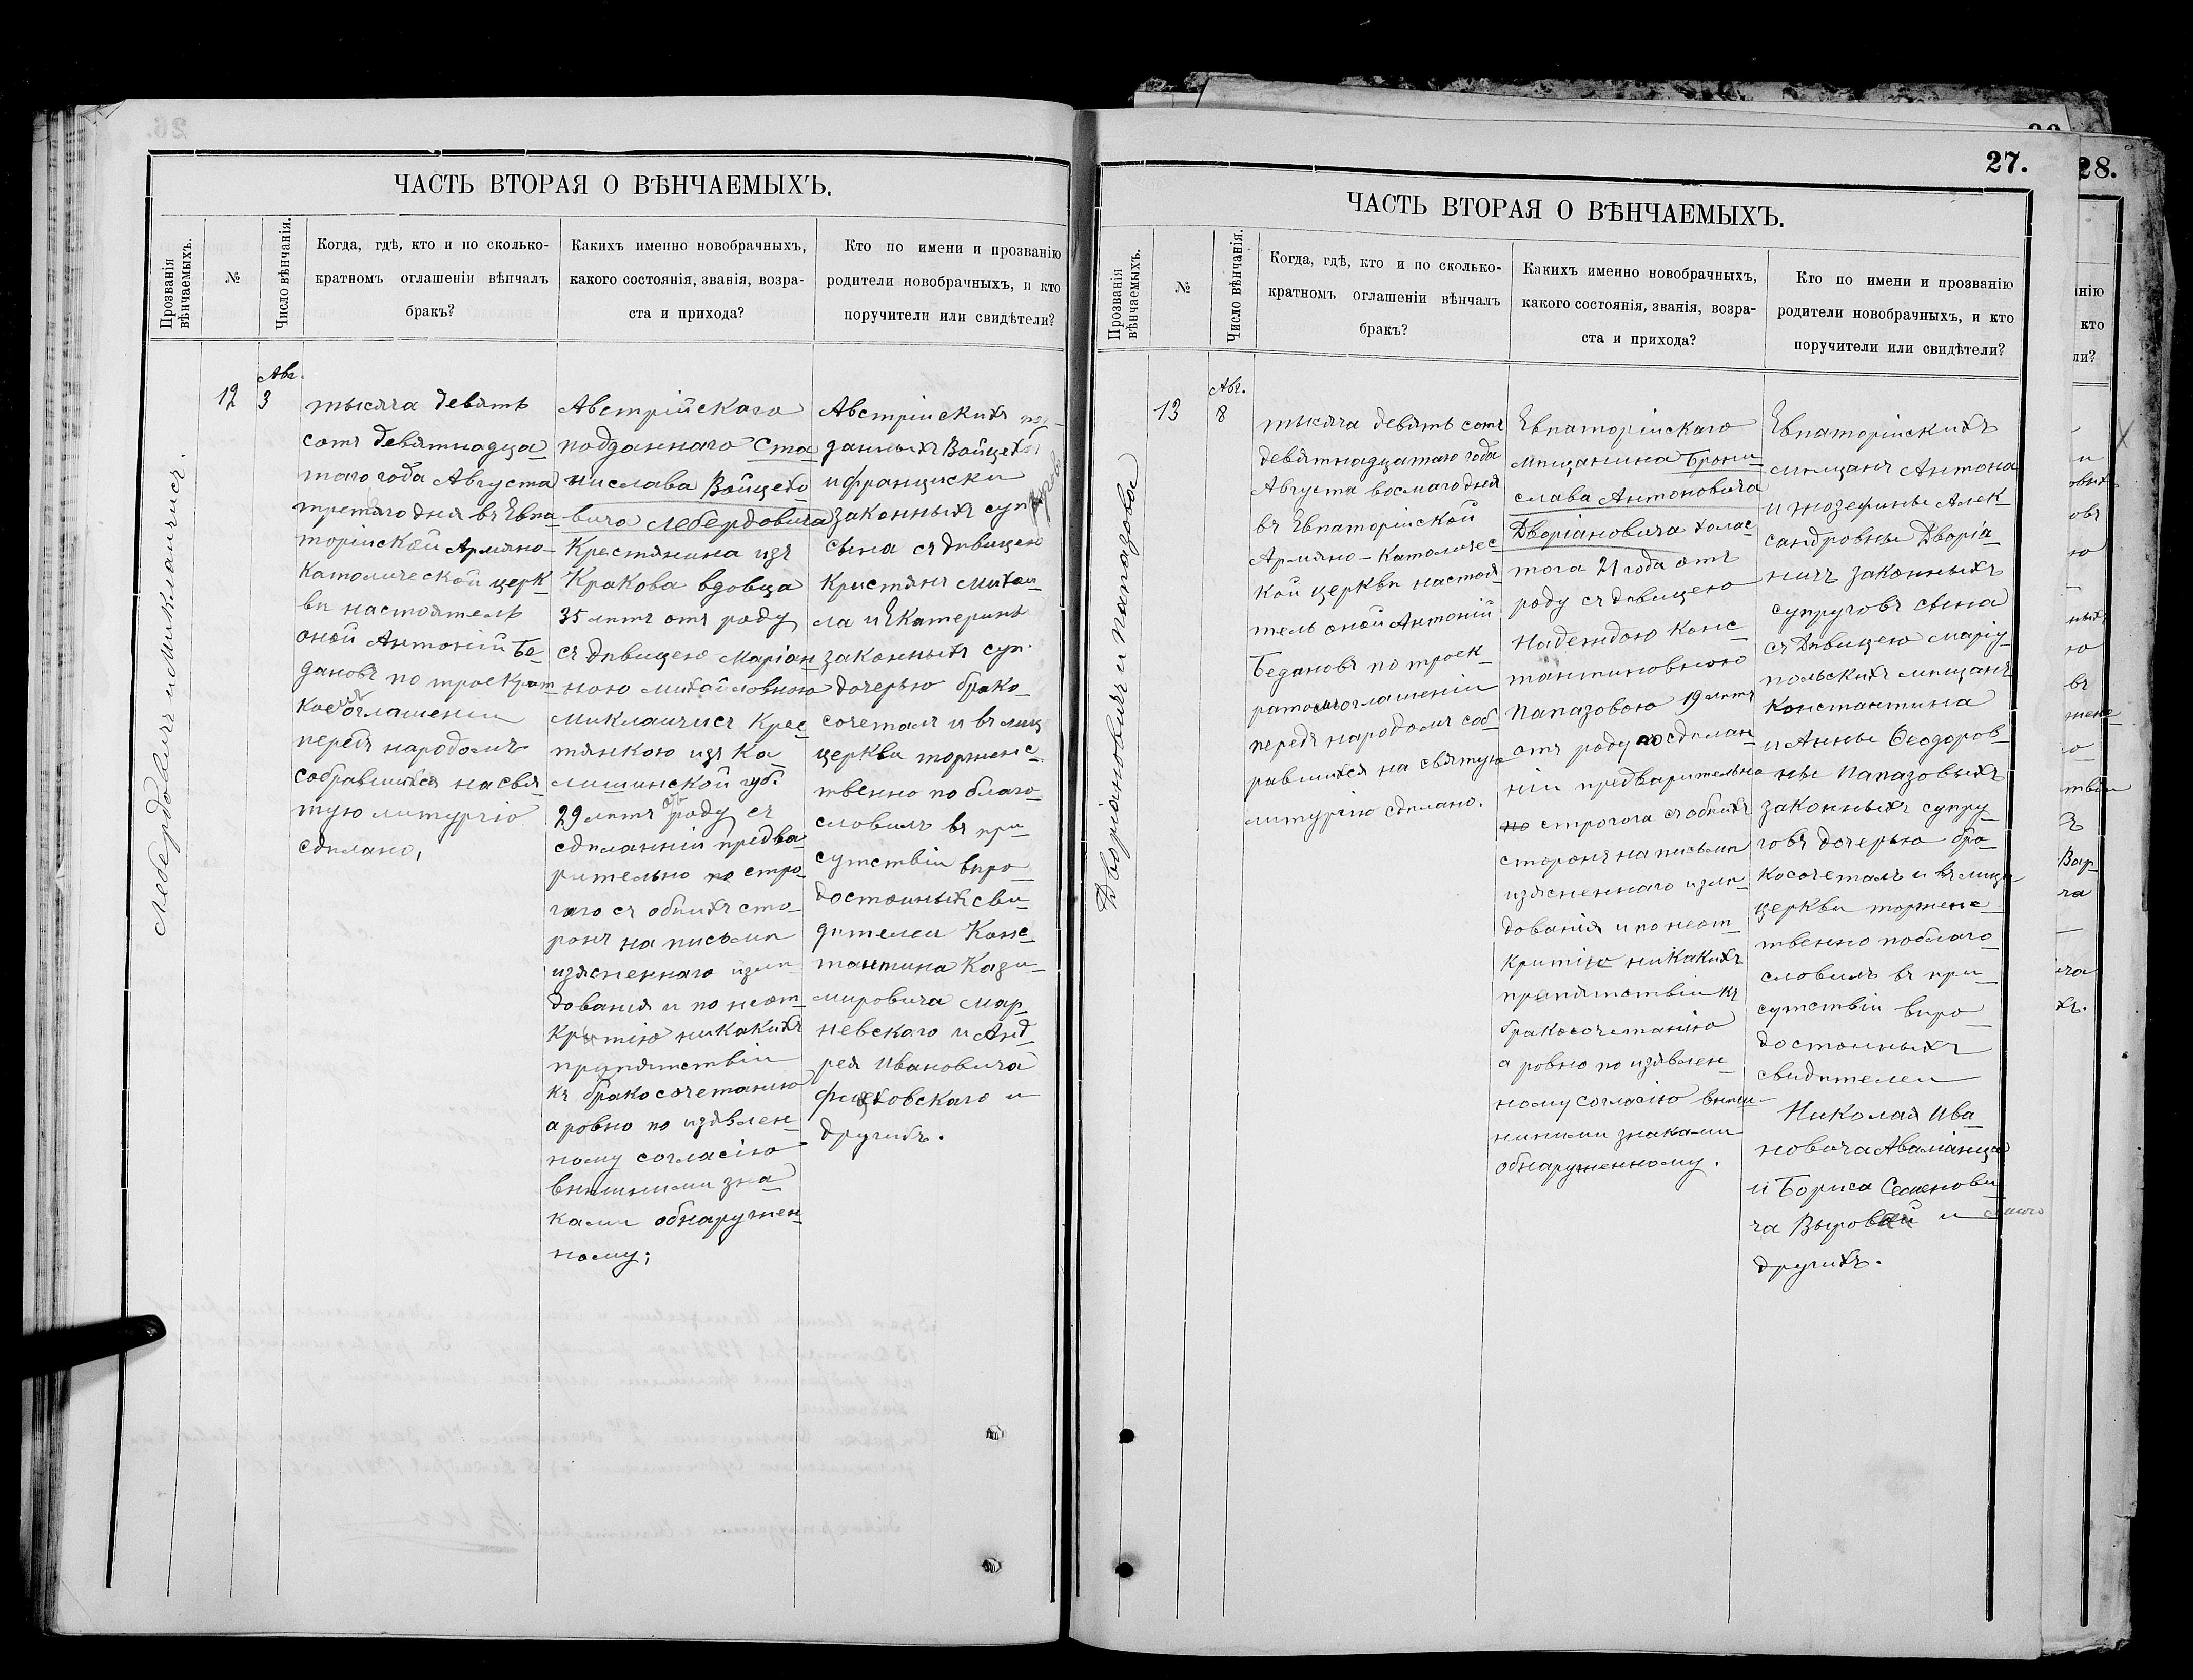 ЧАСТЬ ВТОРАЯ О ВѢНЧАЕМЫХЪ.
Прозванія
вѣнчаемыхъ.
№
Число вѣнчанія.
Когда, гдѣ, кто и по сколько-
кратномъ оглашеніи вѣнчалъ
бракъ?
Какихъ именно новобрачныхъ,
какого состоянія, званія, возра-
ста и прихода?
Кто по имени и прозванію
родители новобрачныхъ, и кто
поручители или свидѣтели?
Лебердовичъ и Миклашчисъ.
12
Авг.
3
тысяча девять
сотъ девятнадца
таго года Августа
третяго дня въ Евпа
торійской Армяно-
Католической церк
ви настоятель
оной Антоній Бе-
дановъ по троекрат
ном оглашеніи
передъ народомъ
собравшихся на свя
тую литургію
сдѣлано,
Австрійскаго
подданнаго Ста
нислава Войцехо
вича Лебердовича
Крестянина изъ
Кракова вдовца
35 лѣтъ отъ роду
съ дѣвицею Маріан
ною Михайловною
Миклашчисъ Крес
тянкою изъ Ка
лишинской губ.
29 лѣтъ отъ роду съ
сдѣланній предва
рительно по стро
гаго съ обѣихъ сто-
ронъ на письмѣ
изясненнаго излѣ-
дованія и по неот
крытію никакихъ
препятствіи
къ бракосочетанію
а ровно по изявлен-
ному согласію
внѣшними зна
ками обнаружен
ному;
Австрійскихъ под-
данныхъ Войцеха
и Франциски
законныхъ суп
ругов
сына съ дѣвицею
Кристянъ Михаи-
ла и Екатерины
законныхъ суп.
дочерью брако
сочеталъ и въ лиц
церкви торжес-
твенно по благо-
словилъ въ при
сутствіи вѣро-
достоиныхъ сви-
дѣтелеи Конс-
тантина Кази-
мировича Мар
невского и Анд
рея Ивановича
и
другихъ.
27.
ЧАСТЬ ВТОРАЯ О ВѢНЧАЕМЫХЪ.
Прозванія
вѣнчаемыхъ.
№
Число вѣнчанія.
Когда, гдѣ, кто и по сколько-
кратномъ оглашеніи вѣнчалъ
бракъ?
Какихъ именно новобрачныхъ,
какого состоянія, званія, возра-
ста и прихода?
Кто по имени и прозванію
родители новобрачныхъ, и кто
поручители или свидѣтели?
Дворіановичъ и Папазова
13
Авг.
8
тысяча девять сотъ
девятнадцатаго года
Августа восмаго дня
въ Евпаторійской
Армяно-Католичес
кой церкви настоя
тель оной Антоній
Бедановъ по троек-
ратном оглашеніи
передъ народомъ соб
равшихся на святую
литургію сдѣлано.
Евпаторійскаго
мѣщанина Брони
слава Антоновича
Дворіановича холос-
тога 21 года отъ
роду съ дѣвицею
Надеждою Конс
тантиновною
Папазовою 19 лѣтъ
отъ роду по сдѣлан
ніи предварительно
по строгога съ обѣихъ
сторонъ на письмѣ
изясненнаго излѣ-
дованія и по неот
критію никакихъ
препятствіи къ
бракосочетанію
а ровно по изявлен-
ному согласію внѣш-
ниними знаками
обнаруженному.
Евпаторійскихъ
мѣщанъ Антона
и Жозефины Алек
сандровны Дворіа
ничъ законныхъ
супруговъ сына
съ Дѣвицею Маріу
польскихъ мѣщанъ
Константина
и Анны Ѳеодоров
ны Папазовыхъ
законныхъ супру
говъ дочерью бра
косочеталъ и въ лицѣ
церкви торжес
твенно по благо
словилъ въ при
сутствіи вѣро
достоиныхъ
свидѣтелеи
Николая Ива
новича
и Бориса Семенови
ча и
другихъ.
28.